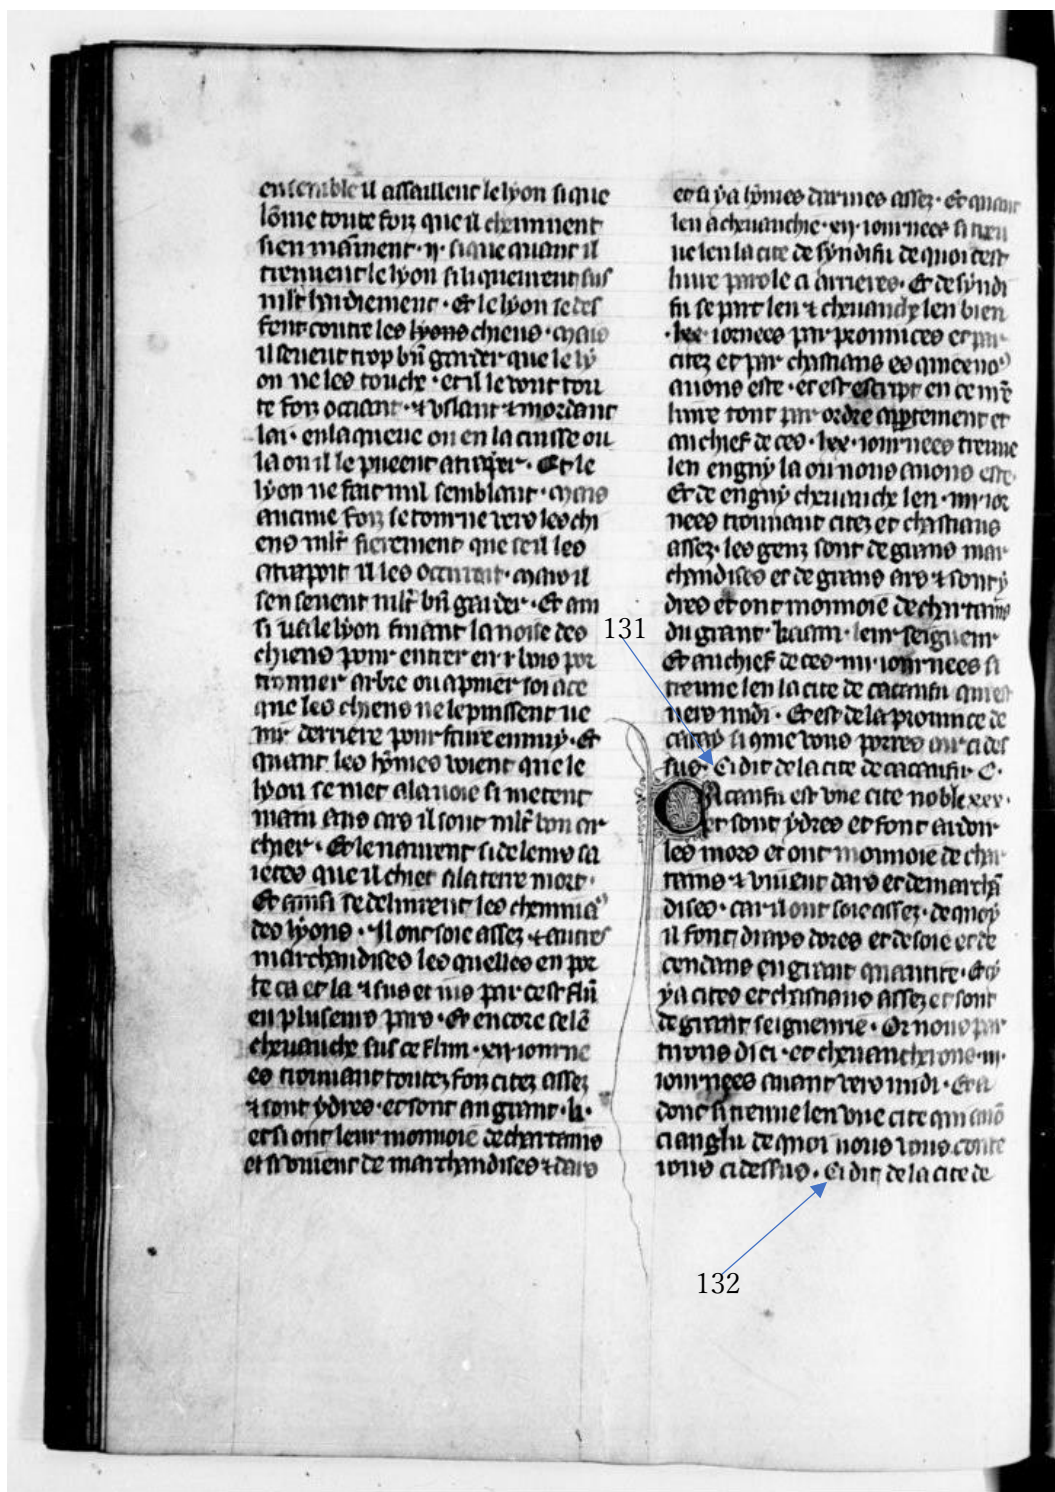 ensemble il assaillent le lyon si que
lo̅me toute foiz que il cheminent
si en mainent .ij. si que quant il
treuuent le lyon si li queurent sus
mlt̅ hardiement . Et le lyon se def
fent contre les lyons chiens . mais
il seuent trop bn̅ garder que le ly
on ne les touche . et il le vont tou
te foiz ociant . ⁊ vslant ⁊ mordant
lai . en la queue ou en la cuisse ou
la ou il le pueent atraper . Et le
lyon ne fait nul semblant . mais
aucune foiz se tourne vers les chi
ens mlt̅ fierement que se il les
atrapoit il les occirroit . mais il
sen seuent mlt̅ bn̅ garder . Et ain
si va le lyon fuiant la noise des
chiens pour entrer en .i. bois por
trouuer arbre ou apuier soi a ce
que les chiens ne le puissent ve
nir derriere pour faire ennuy . Et
quant les homes voient que le
lyon se met a la voie si metent
main aus ars il sont mlt̅ bon ar
chier . Et le naurent si de leurs sa
ietes que il chiet a la terre mort .
Et ainsi se deliurent les cheminanz
des lyons . Il ont soie assez ⁊ autres
marchandises les quelles en por
te ca et la ⁊ sus et ius par cest flu̅
en pluseurs pars . Et encore se le̅
cheuauche sus ce flun . xij . iourne
es trouuant toutez foiz citez assez
⁊ sont ydres . et sont au grant . k .
et si ont leur monnoie de chartains
et si viuent de marchandises ⁊ dars
et si y a homes darmes assez . Et quant
len a cheuauchie . xij . iournees si treu
ue len la cite de syndifu de quoi cest
liure parole ca arrieres . Et de syndi
fu se part len ⁊ cheuauche len bien
. lxx . iornees par prouinces et par
citez et par chastiaus es quiex nous
auons este . et est escript en ce mr̅
liure tout par ordre appertement et
au chief de ces . lxx . iournees treuue
len engny la ou nous auons este .
Et de engny cheuauche len . iiij . ior
nees trouuant citez et chastiaus
assez . les genz sont de grans mar
chandises et de grans ars ⁊ sont y
dres et ont monnoie de chartains
du grant . kaam . leur seigneur
Et au chief de ces . iiij . iournees si
treuue len la cite de cacanfu qui est
vers midi . Et est de la prouince de
catay si que vous porres oir ci des
sus . Ci dit de la cite de cacanfu . C .
131
Cacanfu est vne cite noble xxx .
et sont ydres et font ardoir
les mors et ont monnoie de char
tains ⁊ viuent dars et de marcha̅
dises . car il ont soie assez . de quoy
il font draps dores et de soie et de
cendaus en grant quantite . et si
y a cites et chastiaus assez et sont
de grant seigneurie . Or nous par
tirons dici . et cheuaucherons . iij .
iournees auant vers midi . Et a
donc si treuue len vne cite qui a no̅
cianglu de quoi nous vous conte
rons ci dessus . Ci dit de la cite de
132